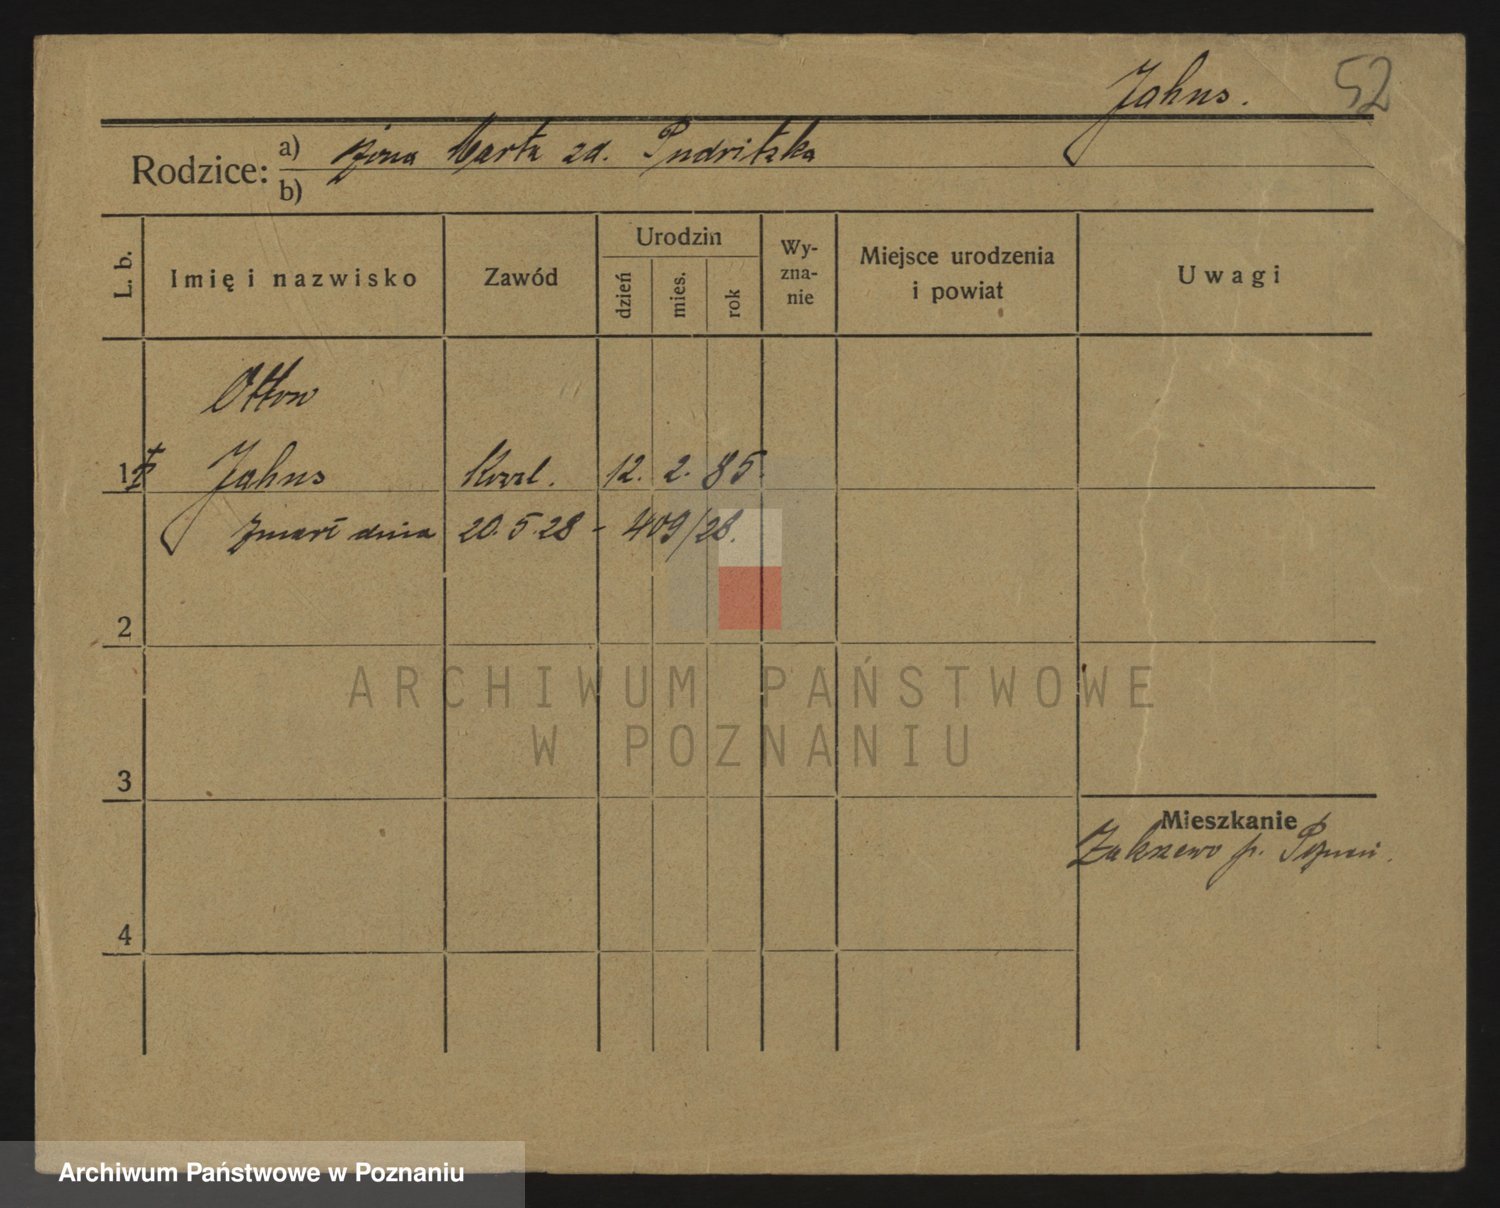 Jahns. 52
Rodzice: a) żona Marta zd. Pudritzka
b)
L. b.
Imię i nazwisko
Zawód
Urodzin
dzień
mies.
rok
Wy-
zna-
nie
Miejsce urodzenia
i powiat
Uwagi
Otton
1 Jahns 12. 2. 85.
zmarł dnia 20.5.28 - 409/28.
2
ARCHIWUM PAŃSTWOWE
W POZNANIU
3
Mieszkanie
p. Poznań.
4
Archiwum Państwowe w Poznaniu